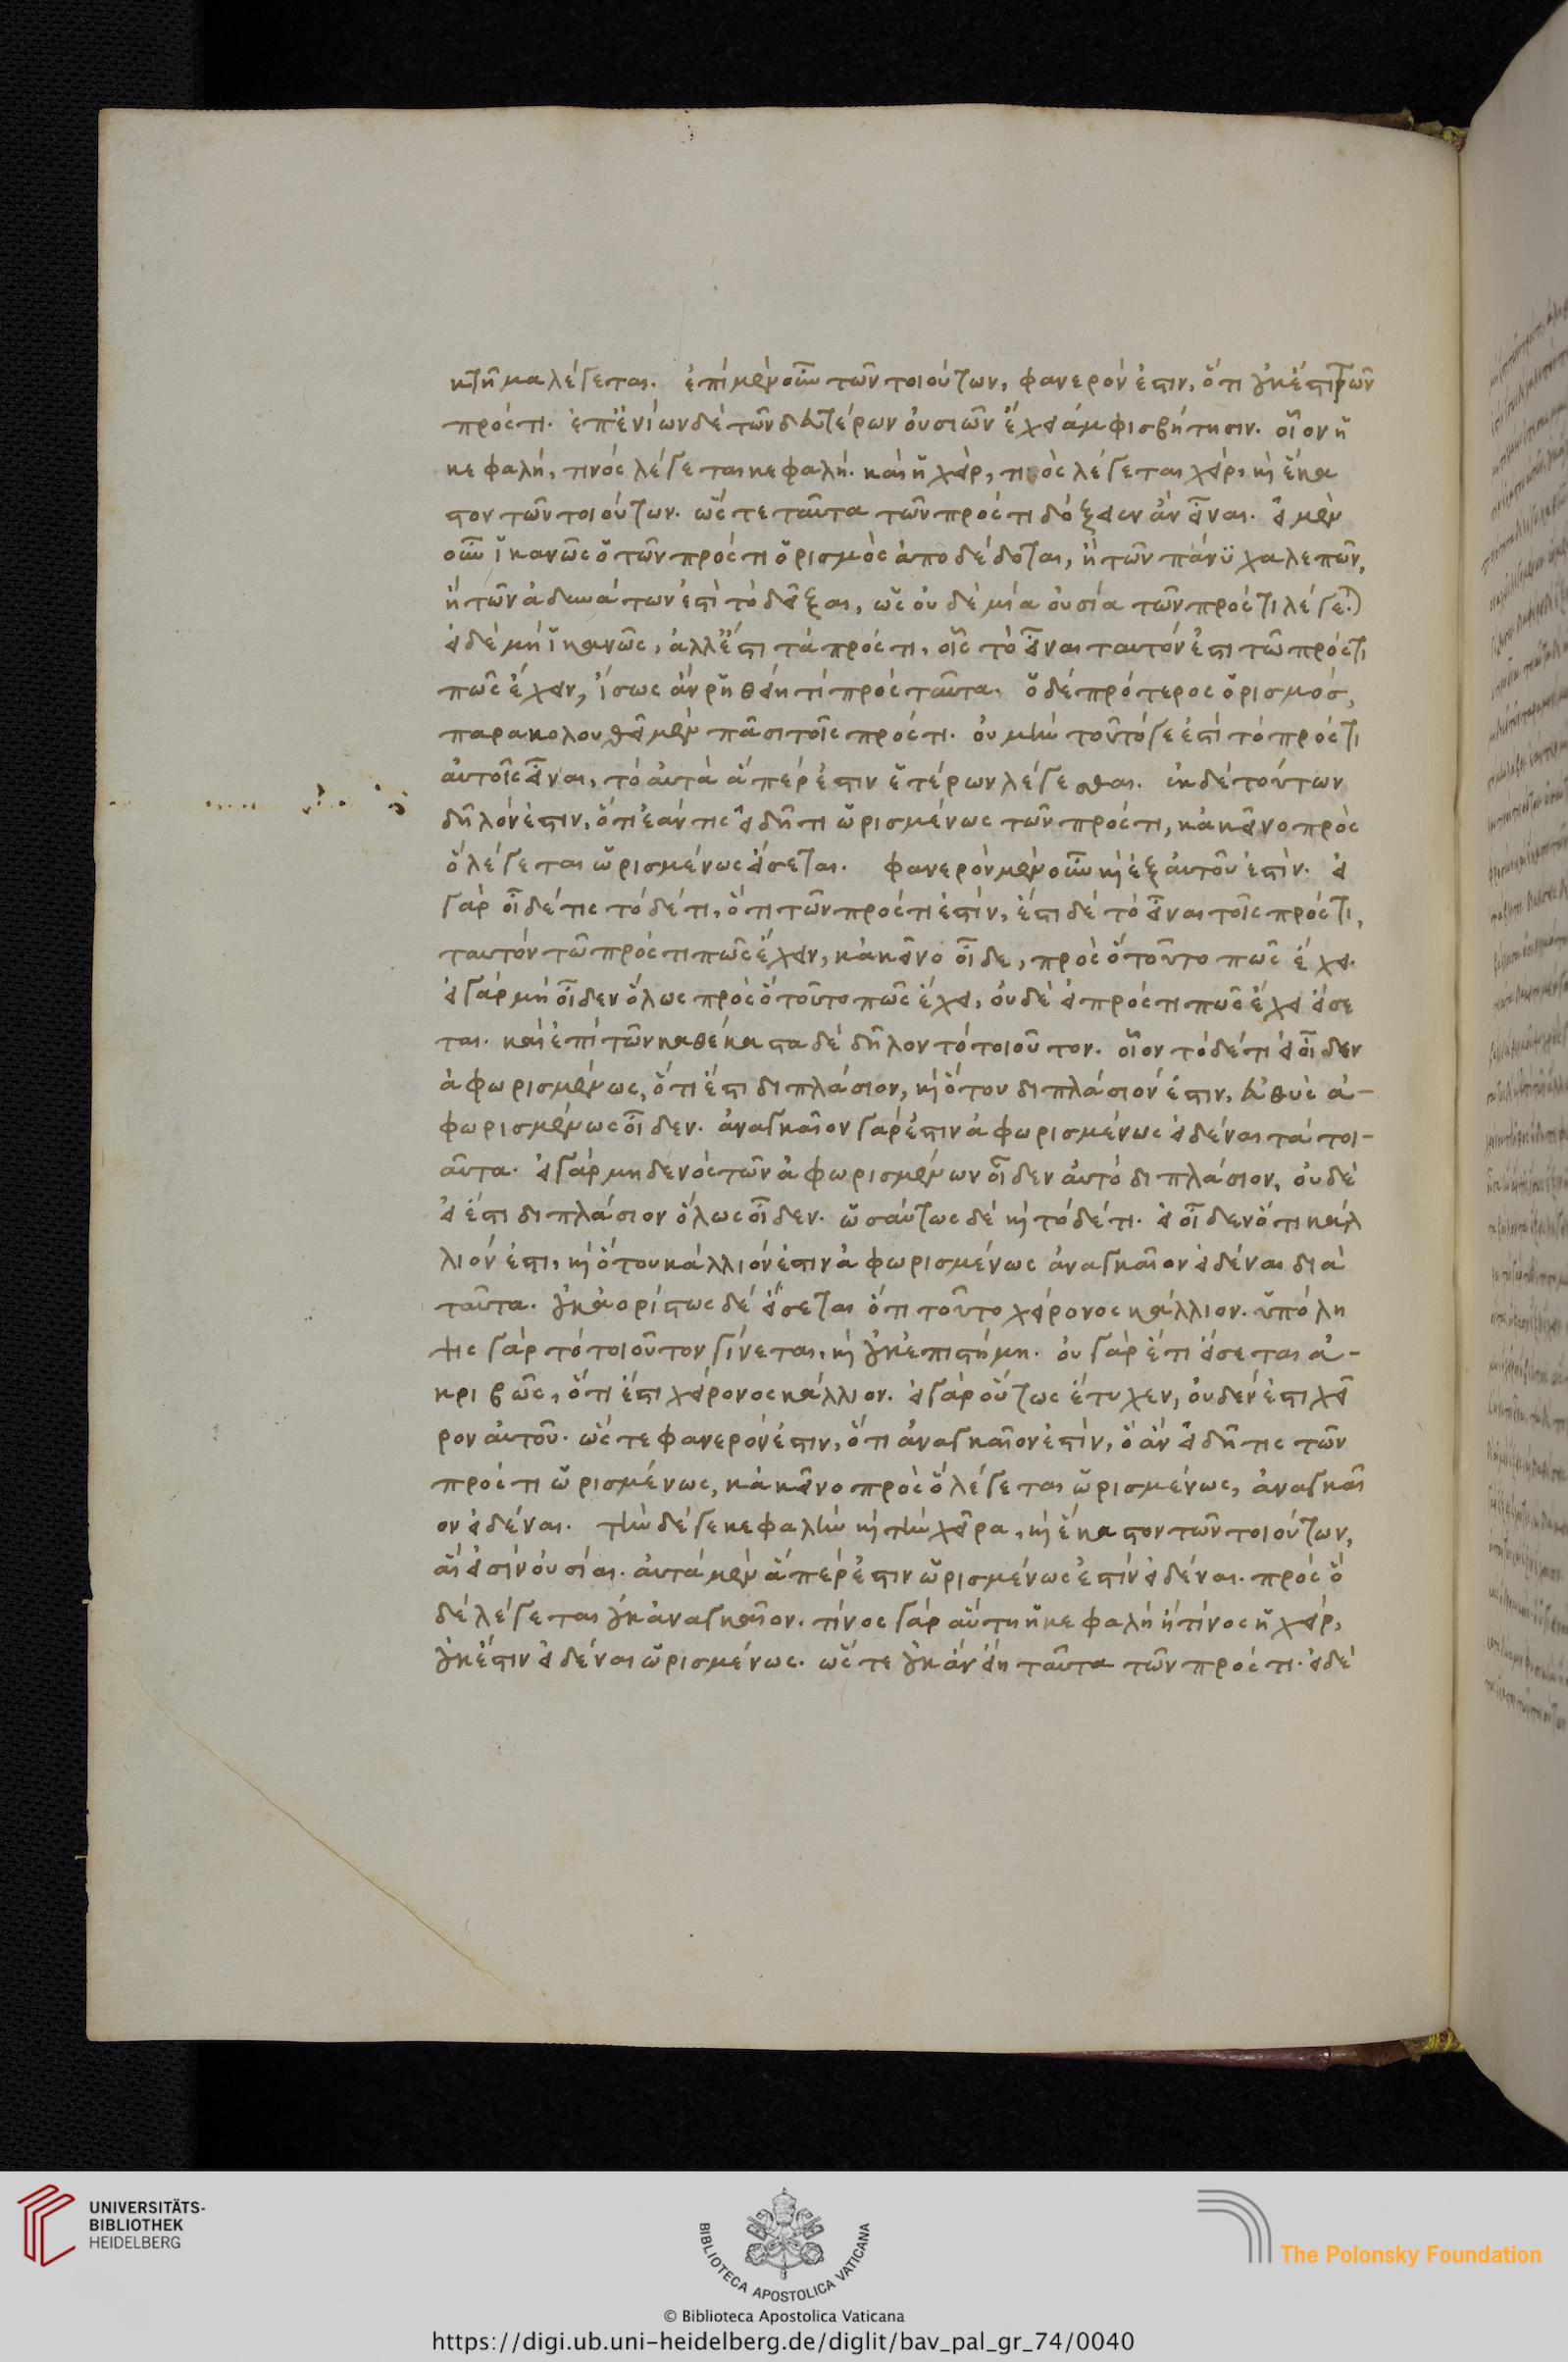 κτῆμα λέγεται. ἐπὶ μὲν οὖν τῶν τοιούτων, φανερόν ἐστιν, ὅτι οὐκ ἔστι τῶν
πρός τι. ἐπ' ἐνίων δὲ τῶν δευτέρων οὐσιῶν ἔχει ἀμφισβήτησιν. οἷον ἡ
κεφαλή, τινὸς λέγεται κεφαλή. καὶ ἡ χείρ, τινὸς λέγεται χείρ, καὶ ἕκα
στον τῶν τοιούτων. ὥστε ταῦτα τῶν πρός τι δόξειεν ἂν εἶναι. εἰ μὲν
οὖν ἱκανῶς ὁ τῶν πρός τι ὁρισμὸς ἀποδέδοται, ἢ τῶν πάνυ χαλεπῶν,
ἢ τῶν ἀδυνάτων ἐστὶ τὸ δεῖξαι, ὡς οὐδεμία οὐσία τῶν πρός τι λέγεται.
εἰ δὲ μὴ ἱκανῶς, ἀλλ' ἔστι τὰ πρός τι, οἷς τὸ εἶναι ταυτόν ἐστι τῷ πρός τι
πῶς ἔχειν, ἴσως ἂν ῥηθείη τί πρὸς ταῦτα. ὁ δὲ πρότερος ὁρισμός,
παρακολουθεῖ μὲν πᾶσι τοῖς πρός τι. οὐ μὴν τοῦτό γε ἐστὶ τὸ πρός τι
αὐτοῖς εἶναι, τὸ αὐτὰ ἅπερ ἐστὶν ἑτέρων λέγεσθαι. ἐκ δὲ τούτων
δῆλόν ἐστιν, ὅτι ἐάν τις εἰδῇ τι ὡρισμένως τῶν πρός τι, κἀκεῖνο πρὸς
ὃ λέγεται ὡρισμένως εἴσεται. φανερὸν μὲν οὖν καὶ ἐξ αὐτοῦ ἐστίν. εἰ
γὰρ οἶδέ τις τόδε τι, ὅτι τῶν πρός τι ἐστίν, ἔστι δὲ τὸ εἶναι τοῖς πρός τι,
ταυτὸν τῷ πρός τι πῶς ἔχειν, κἀκεῖνο οἶδε, πρὸς ὃ τοῦτο πῶς ἔχει.
εἰ γὰρ μὴ οἶδεν ὅλως πρὸς ὃ τοῦτο πῶς ἔχει, οὐδὲ εἰ πρός τι πῶς ἔχει εἴσε
ται. καὶ ἐπὶ τῶν καθέκαστα δὲ δῆλον τὸ τοιοῦτον. οἷον τόδε τι εἰ οἶδεν
ἀφωρισμένως, ὅτι ἔστι διπλάσιον, καὶ ὅτου διπλάσιόν ἐστιν, εὐθὺς ἀ-
φωρισμένως οἶδεν. ἀναγκαῖον γάρ ἐστιν ἀφωρισμένως εἰδέναι τὰ τοι-
αῦτα. εἰ γὰρ μηδενὸς τῶν ἀφωρισμένων οἶδεν αὐτὸ διπλάσιον, οὐδὲ
εἰ ἔστι διπλάσιον ὅλως οἶδεν. ὡσαύτως δὲ καὶ τόδε τι. εἰ οἶδεν ὅτι κάλ
λιόν ἐστι, καὶ ὅτου κάλλιόν ἐστιν ἀφωρισμένως ἀναγκαῖον εἰδέναι διὰ
ταῦτα. οὐκ ἀορίστως δὲ εἴσεται ὅτι τοῦτο χείρονος κάλλιον. ὑπόλη
ψις γὰρ τὸ τοιοῦτον γίνεται, καὶ οὐκ ἐπιστήμη. οὐ γὰρ ἔτι εἴσεται ἀ-
κριβῶς, ὅτι ἔστι χείρονος κάλλιον. εἰ γὰρ οὕτως ἔτυχεν, οὐδέν ἐστι χεῖ
ρον αὐτοῦ. ὥστε φανερόν ἐστιν, ὅτι ἀναγκαῖον ἐστὶν, ὃ ἂν εἰδῇ τις τῶν
πρός τι ὡρισμένως, κἀκεῖνο πρὸς ὃ λέγεται ὡρισμένως, ἀναγκαῖ
ον εἰδέναι. τὴν δέ γε κεφαλὴν καὶ τὴν χεῖρα, καὶ ἕκαστον τῶν τοιούτων,
αἵ εἰσιν οὐσίαι. αὐτὰ μὲν ἅπερ ἐστὶν ὡρισμένως ἐστὶν εἰδέναι. πρὸς ὃ
δὲ λέγεται οὐκ ἀναγκαῖον. τίνος γὰρ αὕτη ἡ κεφαλὴ ἢ τίνος ἡ χείρ,
οὐκ ἔστιν εἰδέναι ὡρισμένως. ὥστε οὐκ ἂν εἴη ταῦτα τῶν πρός τι. εἰ δὲ
UNIVERSITÄTS-
BIBLIOTHEK
HEIDELBERG
BIBLIOTECA APOSTOLICA VATICANA
The Polonsky Foundation
© Biblioteca Apostolica Vaticana
https://digi.ub.uni-heidelberg.de/diglit/bav_pal_gr_74/0040